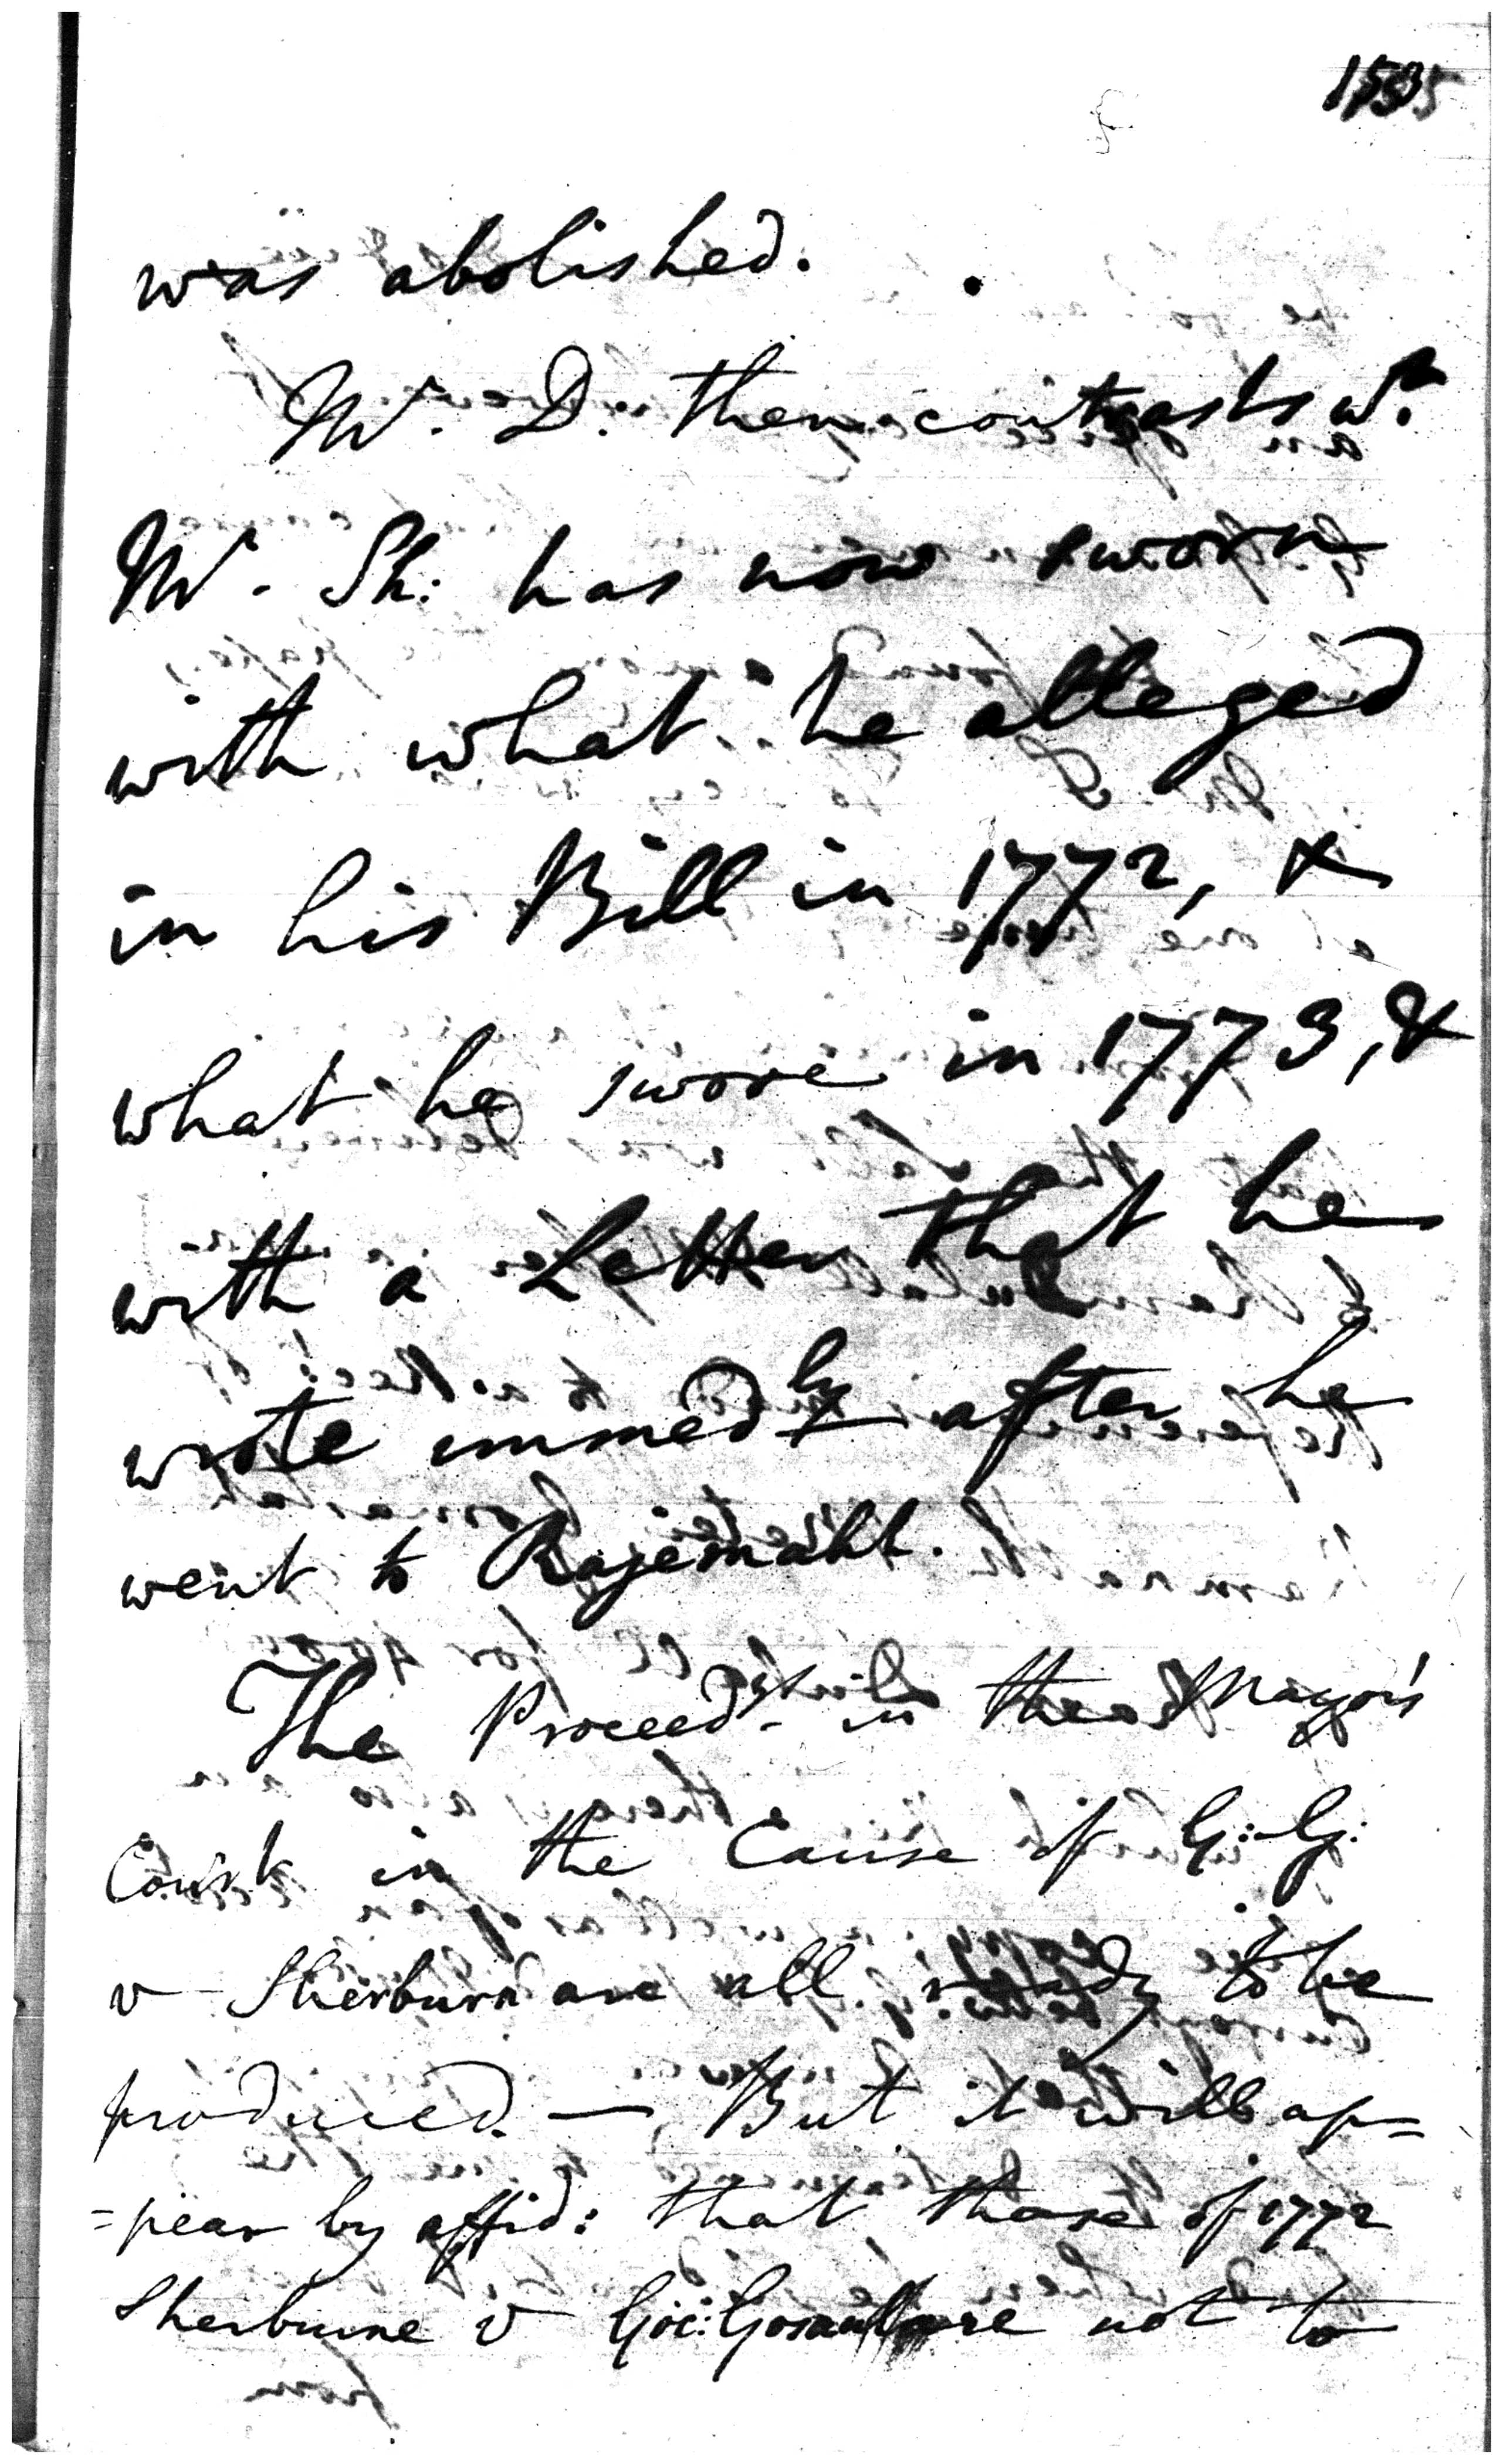 was abolished.
Mr. D. then contrasts wt.
Mr. Sh: has now sworn
with what he alleged
in his Bill in 1772, &
what he swore in 1773, &
with a Letter that he
wrote immedly after he
went to Rajemahl.
The Proceedgs in the Mayor's
Court in the Cause of G: G:
v Sherburn are all ready to be
produced. — But it will ap=
=pear by affid: that those of 1772
Sherburne v Goc: are not to